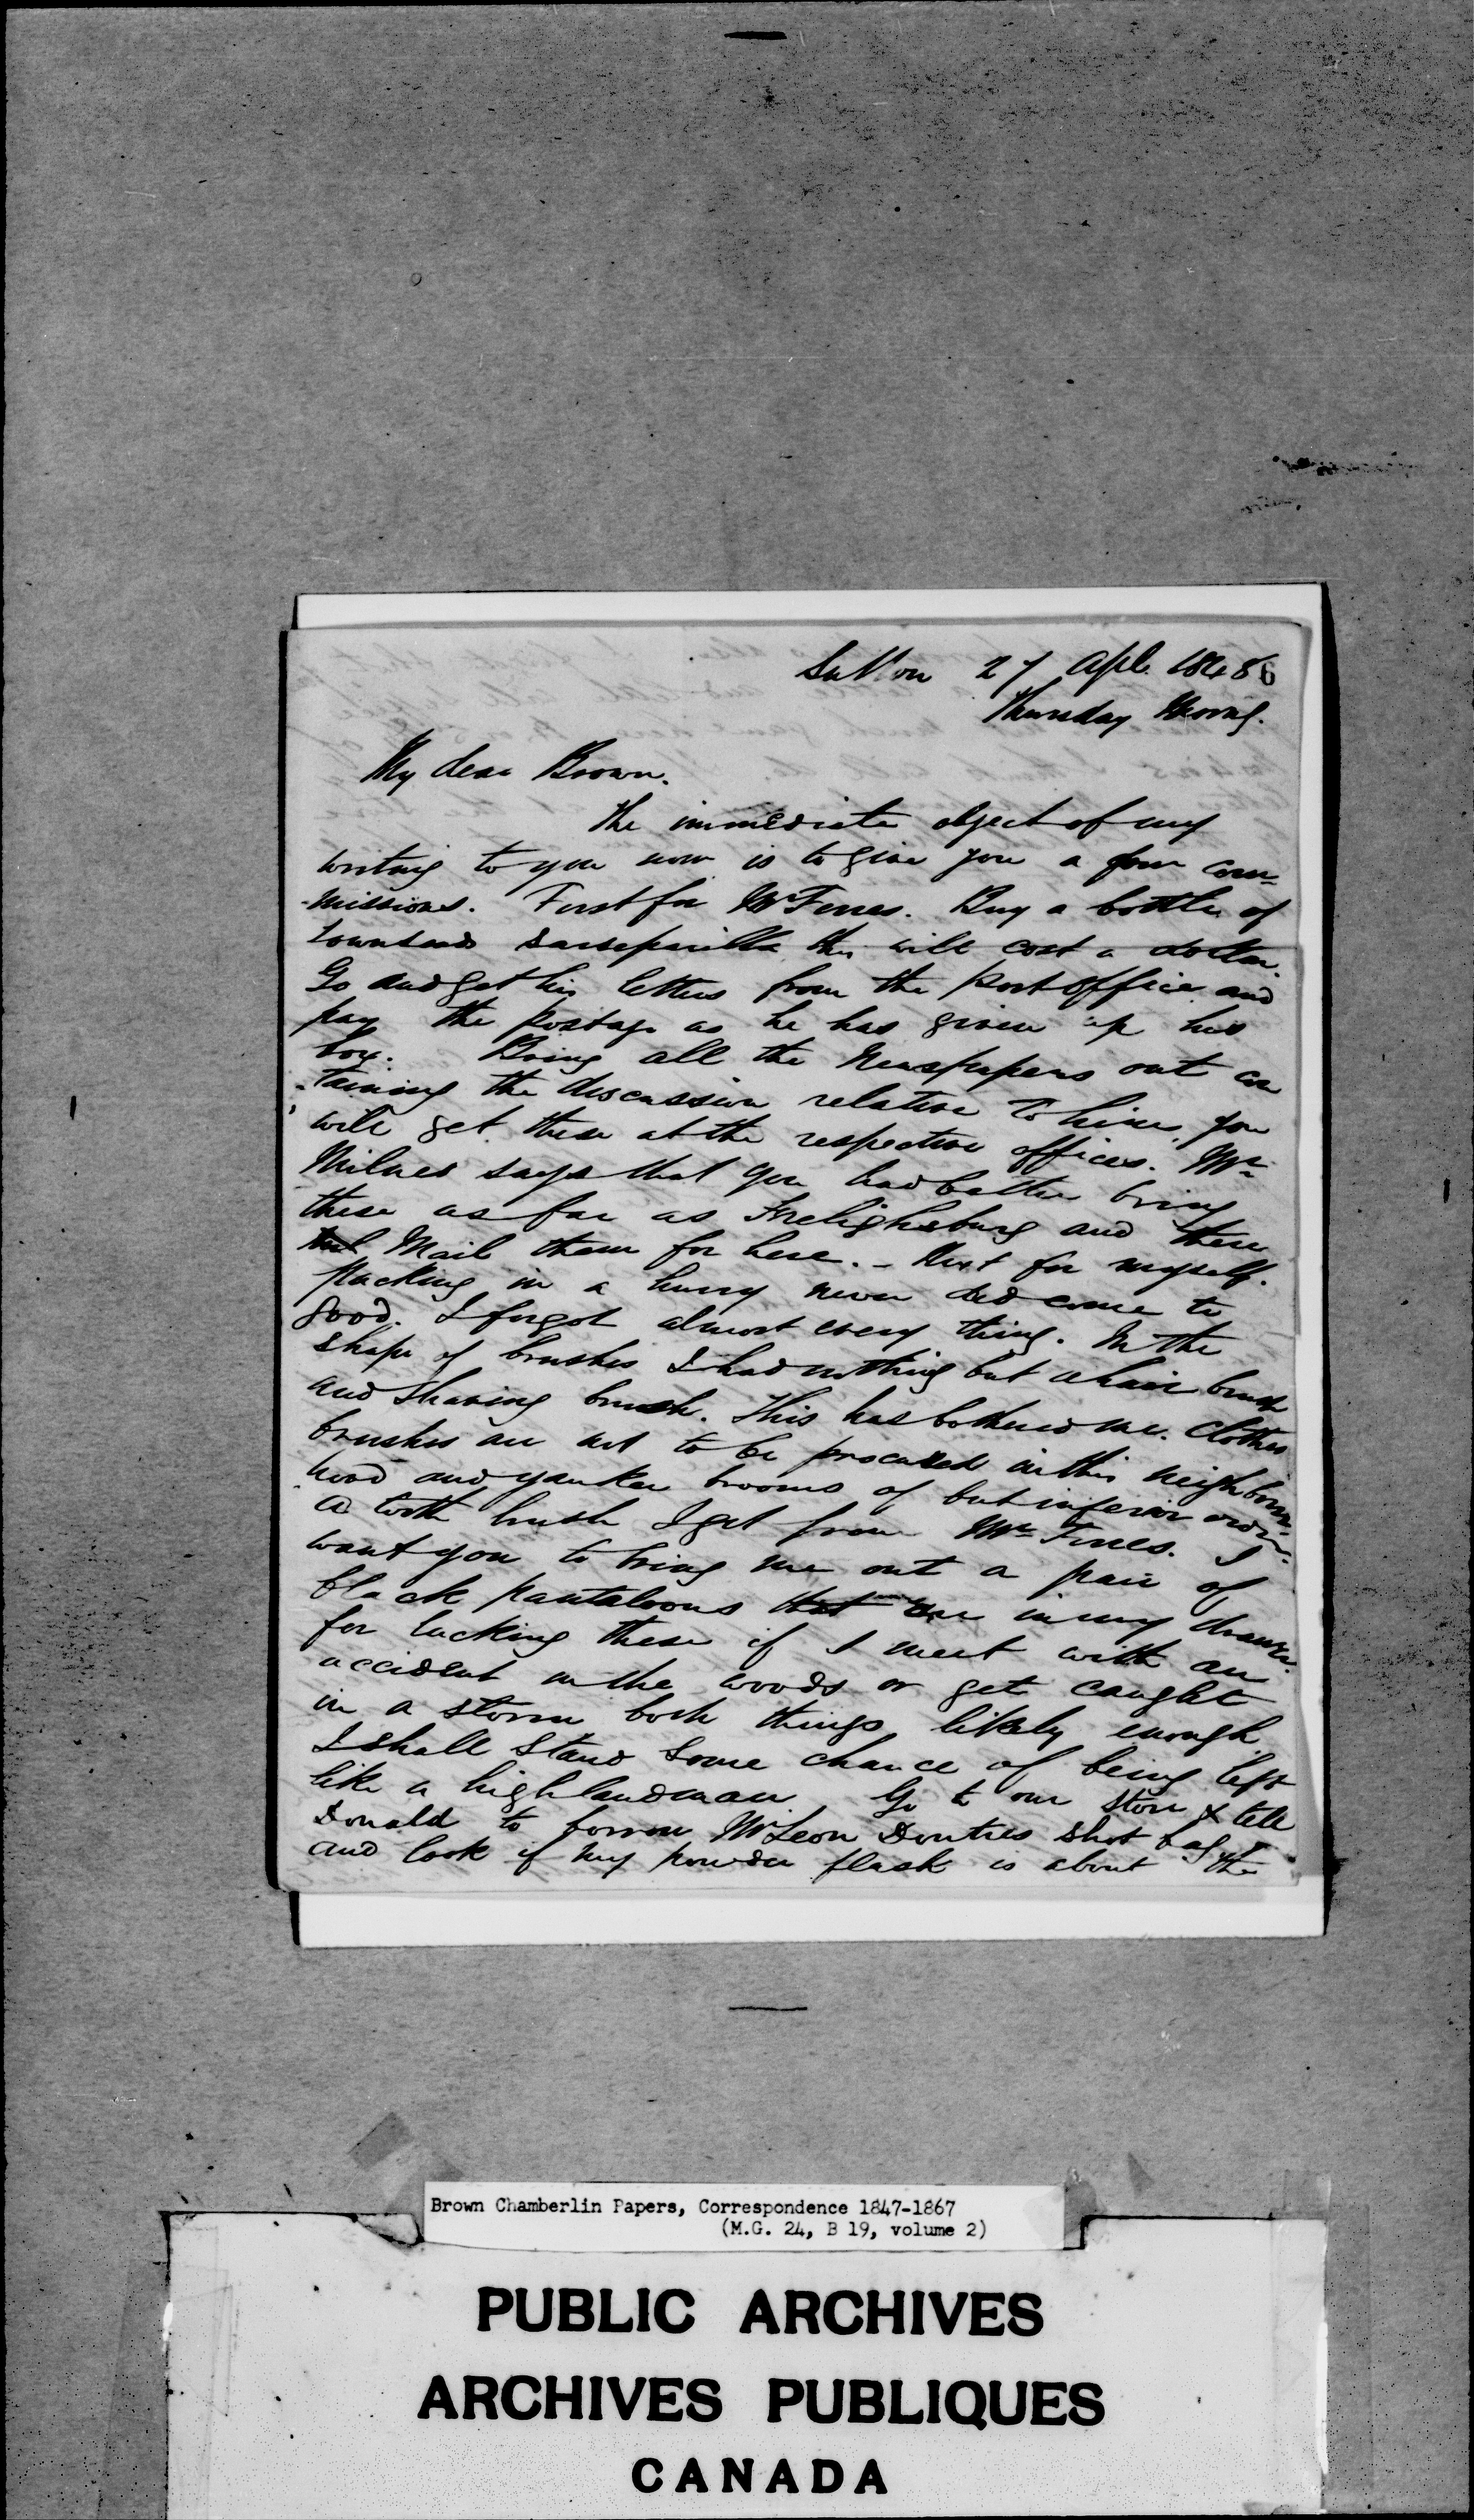 Sutton 27 Apl. 1848 6
Thursday Morng.
My dear Brown.
The immediate object of my
writing to you now is to give you a few com-
-missions. First for Mr Fines. Buy a bottle of
Townsends sarseparilla this will cost a dollar.
Go and get his letters from the Post Office and
pay the postage as he has given up his
box. Bring all the Newspapers out con
-taining the discussion relative to him you
will get these at the respective offices. Mr
Milnes says that you had better bring
these as far as Frelighsburg and then
Mail them for here. - Next for myself.
packing in a hurry never did come to
good. I forgot almost every thing. In the
shape of brushes I had nothing but a hair brush
and shaving brush. This has bothered me. Clothes
brushes are not to be procured in this neighbour-
hood and yankee brooms of but inferior order.
a tooth brush I get from Mr Fines. I
want you to bring me out a pair of
black pantaloons that are in my drawer.
for lacking these if I meet with an
accident in the woods or get caught
in a storm both things likely enough
I shall stand some chance of being left
like a highlandman. Go to our store & tell
Donald to borrow McLeon Douties shot bag
and look if my powder flask is about the
Brown Chamberlin Papers, Correspondence 1847-1867
(M.G. 24, B 19, volume 2)
PUBLIC ARCHIVES
ARCHIVES PUBLIQUES
CANADA